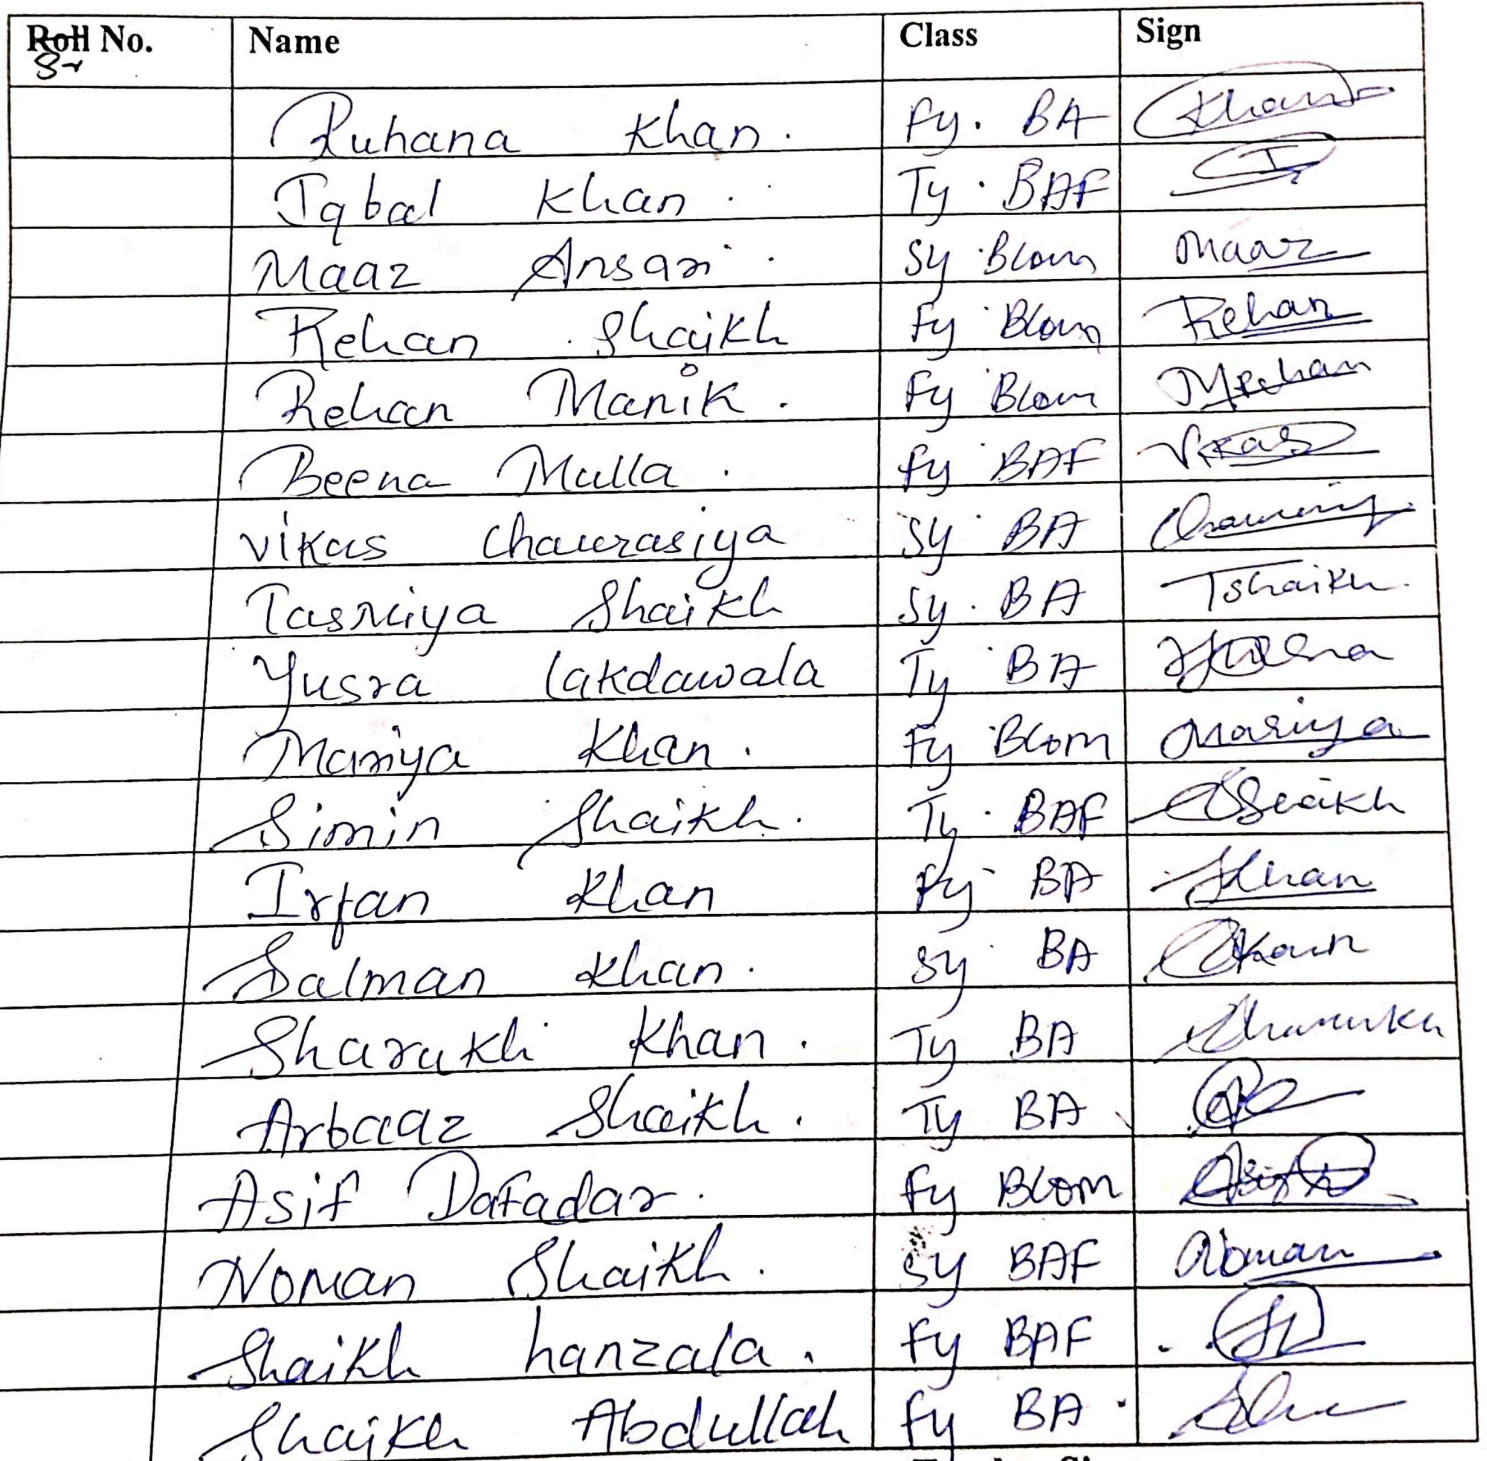 Roll No. Name Class Sign
Sr
Ruhana Khan. Fy. BA Khan
Iqbal Khan. Ty. BAF I
Maaz Ansari. Sy Bcom Maaz
Rehan Shaikh Fy Bcom Rehan
Rehan Manik. Fy Bcom Mrehan
Beena Mulla. Fy BAF Vikas
Vikas Chaurasiya Sy BA
Tasmiya Shaikh Sy. BA Tshaikh.
Yusra Lakdawala Ty BA
Mariya Khan. Fy Bcom Mariya
Simin Shaikh. Ty. BAF Shaikh
Irfan Khan Fy BA Khan
Salman Khan. Sy BA
Sharukh Khan. Ty BA Sharukh
Arbaaz Shaikh. Ty BA
Asif Dafadar. Fy Bcom Asif
Noman Shaikh. Sy BAF Noman
Shaikh hanzala. Fy BAF
Shaikh Abdullah Fy BA.